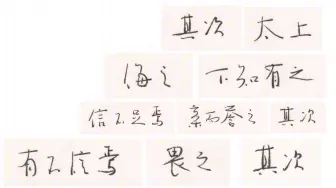 太上
下知有之
其次
亲而誉之
其次
畏之
其次
侮之
信不足焉
有不信焉